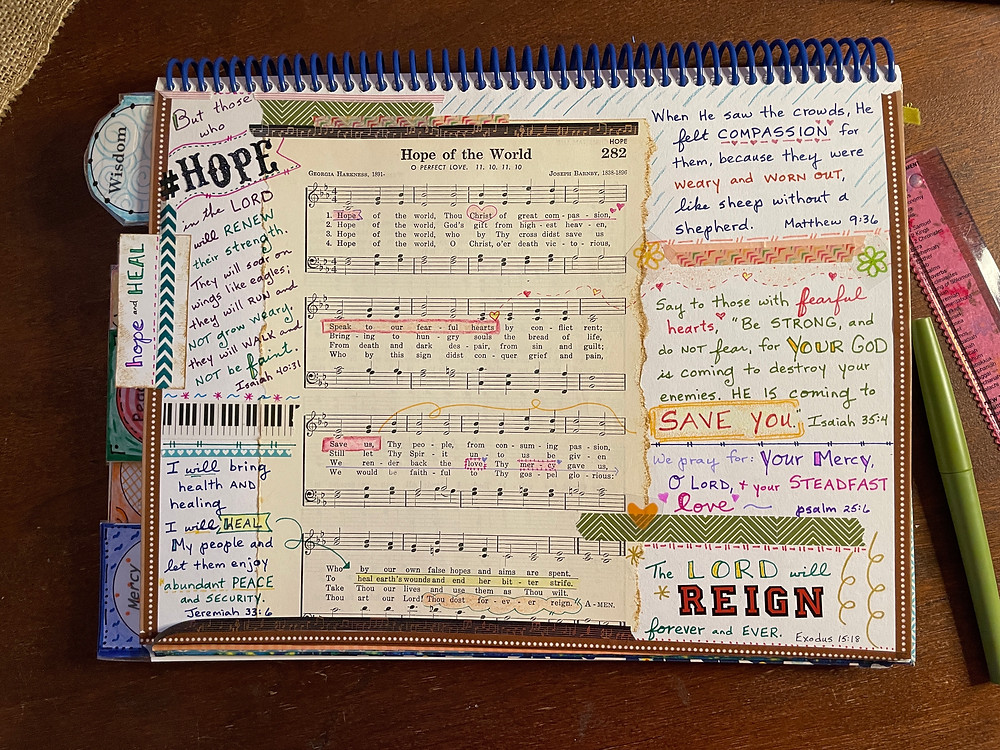 Wisdom
hope and HEAL
Peace
Mercy
But those
who
#HOPE
in the LORD
will RENEW
their strength.
They will soar on
wings like eagles;
they will RUN and
NOT grow weary.
they will WALK and
NOT be faint.
Isaiah 40:31
I will bring
health AND
healing
I will HEAL
My people and
let them enjoy
abundant PEACE
and SECURITY.
Jeremiah 33:6
HOPE
Hope of the World 282
O PERFECT LOVE. 11. 10. 11. 10
GEORGIA HARKNESS, 1891- JOSEPH BARNBY, 1838-1896
1. Hope of the world, Thou Christ of great com - pas - sion,
2. Hope of the world, God's gift from high - est heav - en,
3. Hope of the world, who by Thy cross didst save us
4. Hope of the world, O Christ, o'er death vic - to - rious,
Speak to our fear - ful hearts by con - flict rent;
Bring - ing to hun - gry souls the bread of life,
From death and dark des - pair, from sin and guilt;
Who by this sign didst con - quer grief and pain,
Save us, Thy peo - ple, from con - sum - ing pas - sion,
Still let Thy Spir - it un - to us be giv - en
We ren - der back the love Thy mer - cy gave us,
We would be faith - ful to Thy gos - pel glo - rious:
Who by our own false hopes and aims are spent.
To heal earth's wounds and end her bit - ter strife.
Take Thou our lives and use them as Thou wilt.
Thou art our Lord! Thou dost for - ev - er reign. A - MEN.
When He saw the crowds, He
felt COMPASSION for
them, because they were
weary and WORN OUT,
like sheep without a
shepherd. Matthew 9:36
Say to those with fearful
hearts, "Be STRONG, and
do NOT fear, for YOUR GOD
is coming to destroy your
enemies. HE IS coming to
SAVE YOU." Isaiah 35:4
We pray for: Your Mercy,
O LORD, + your STEADFAST
love ~ psalm 25:6
The LORD will
REIGN
forever and EVER. Exodus 15:18